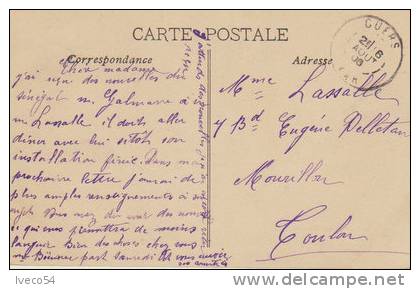 CARTE POSTALE
Correspondance
Adresse
CUERS
AOUT
Chère madame
j'ai reçu des nouvelles du
Sénégal m. Galmare a vu
m. Lassalle il doit aller
diner avec lui sitôt son
installation finie. Dans ma
prochaine lettre j'aurai de
plus amples renseignements
permettra de moins
languir Bien des choses chez vous
part samedi et vous envoie
ses amitiés
Mme Lassalle
7 Bd Eugéne Pelletan
Mourillon
Toulon
Iveco54
delcampe.net